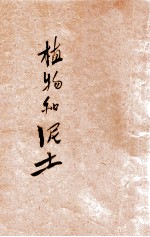 植物和泥土